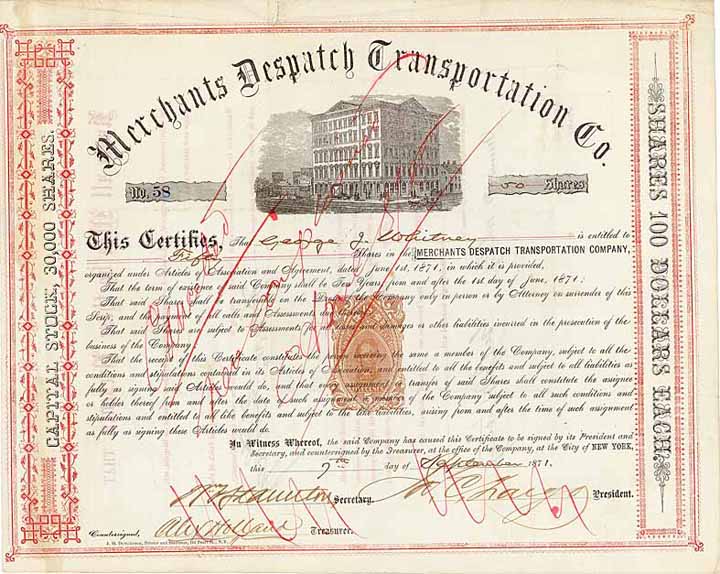 Merchants Despatch Transportation Co.
No. 58
50 Shares
This Certifies, That George J. Whitney is entitled to
Fifty Shares in the MERCHANTS DESPATCH TRANSPORTATION COMPANY,
organized under Articles of Association and Agreement, dated June 1st, 1871, in which it is provided,
That the term of existence of said Company shall be Ten Years, from and after the 1st day of June, 1871;
That said Shares shall be transferable on the Books of the Company only in person or by Attorney on surrender of this
Scrip, and the payment of all calls and Assessments due thereon;
That said Shares are subject to Assessments for losses and damages or other liabilities incurred in the prosecution of the
business of the Company;
That the receipt of this Certificate constitutes the person receiving the same a member of the Company, subject to all the
conditions and stipulations contained in its Articles of Association, and entitled to all the benefits and subject to all liabilities as
fully as signing said Articles would do, and that one assignment or transfer of said Shares shall constitute the assignee
or holder thereof from and after the date of such assignment a member of the Company subject to all such conditions and
stipulations and entitled to all like benefits and subject to the like liabilities, arising from and after the time of such assignment
as fully as signing these Articles would do.
In Witness Whereof, the said Company has caused this Certificate to be signed by its President and
Secretary, and countersigned by the Treasurer, at the office of the Company, at the City of NEW YORK,
this 7th day of September 1871.
Secretary.
President.
Countersigned,
Treasurer.
CAPITAL STOCK, 30,000 SHARES.
SHARES 100 DOLLARS EACH.